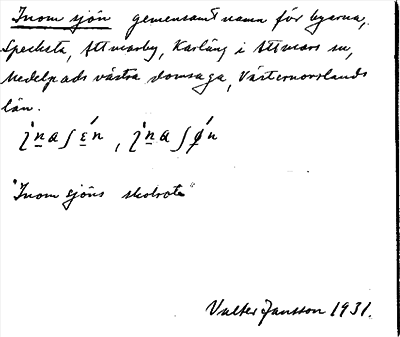 Inom sjön gemensamt namn för byarna,
Specksta, Attmarby, Karläng i Attmars sn,
Medelpads västra domsaga, Västernorrlands
län.
"Inom sjöns skolrote"
Valter Jansson 1931.